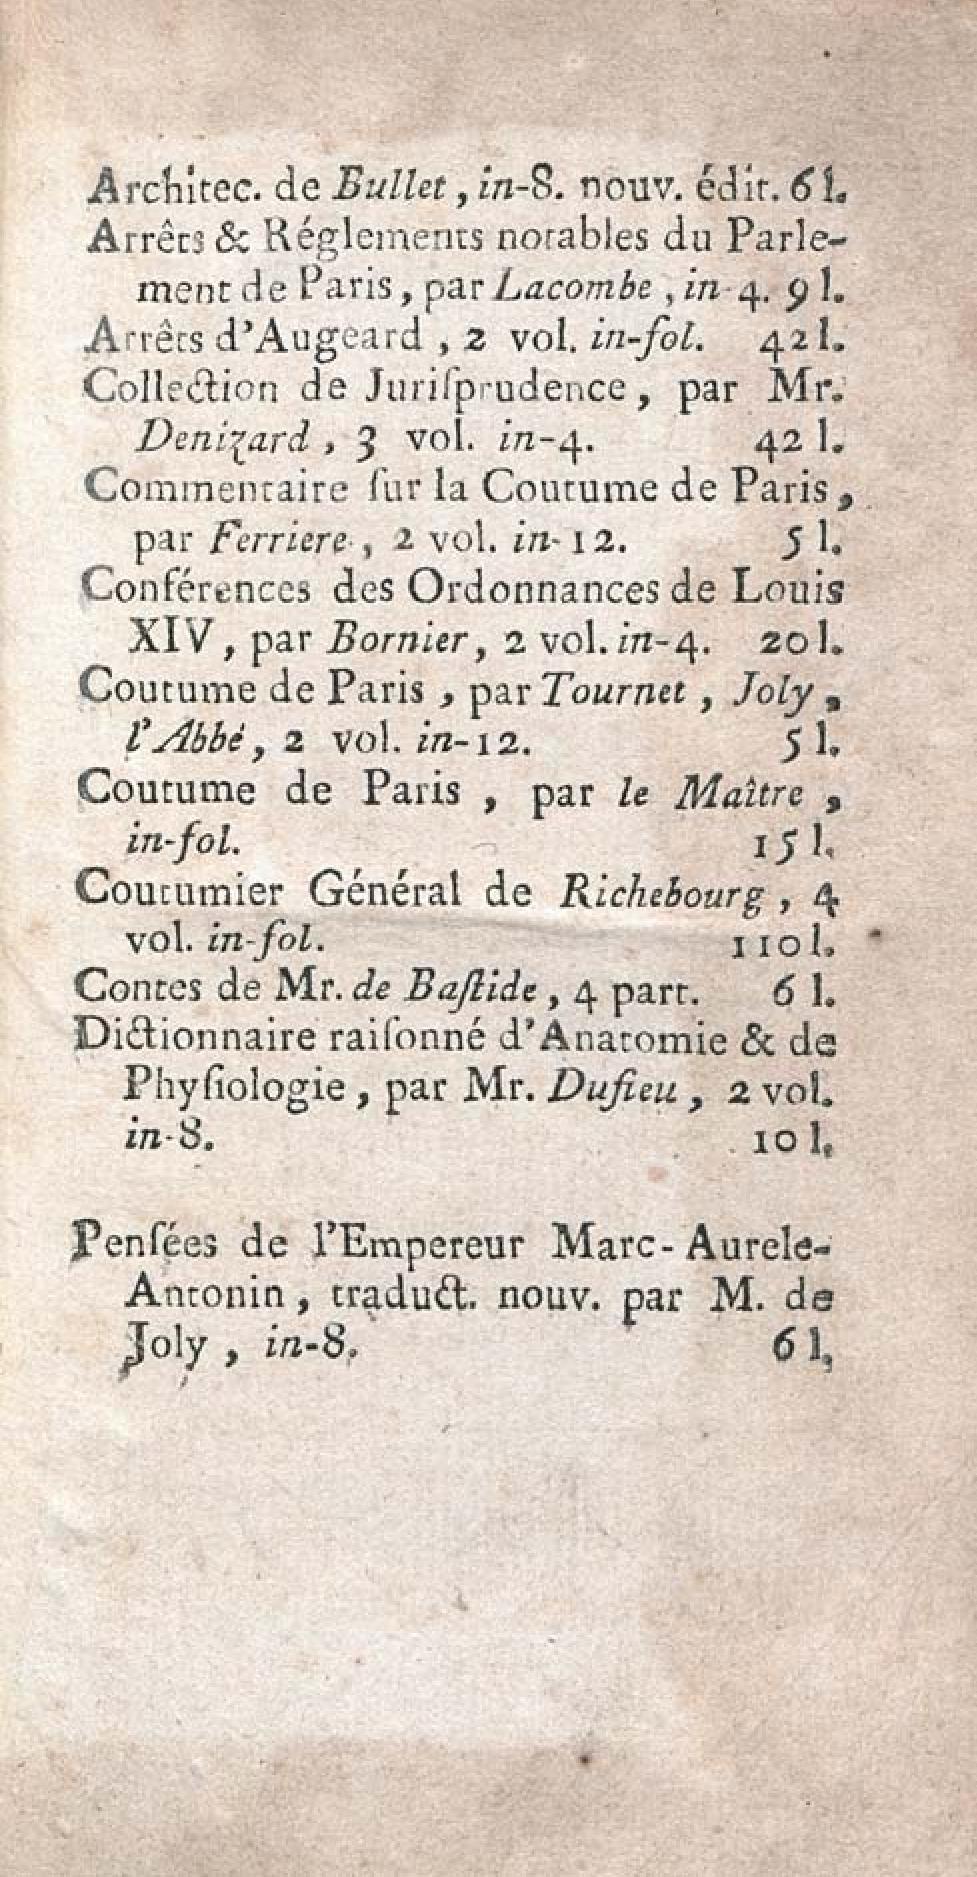 Architec. de Bullet, in-8. nouv. édit. 6 l.
Arrêts & Réglements notables du Parle-
ment de Paris, par Lacombe, in-4. 9 l.
Arrêts d'Augeard, 2 vol. in-fol. 42 l.
Collection de Juriſprudence, par Mr.
Denizard, 3 vol. in-4. 42 l.
Commentaire ſur la Coutume de Paris,
par Ferriere, 2 vol. in-12. 5 l.
Conférences des Ordonnances de Louis
XIV, par Bornier, 2 vol. in-4. 20 l.
Coutume de Paris, par Tournet, Joly,
l'Abbé, 2 vol. in-12. 5 l.
Coutume de Paris, par le Maître,
in-fol. 15 l.
Coutumier Général de Richebourg, 4
vol. in-fol. 110 l.
Contes de Mr. de Baſtide, 4 part. 6 l.
Dictionnaire raiſonné d'Anatomie & de
Phyſiologie, par Mr. Duſieu, 2 vol.
in-8. 10 l.
Penſées de l'Empereur Marc-Aurele-
Antonin, traduct. nouv. par M. de
Joly, in-8. 6 l.